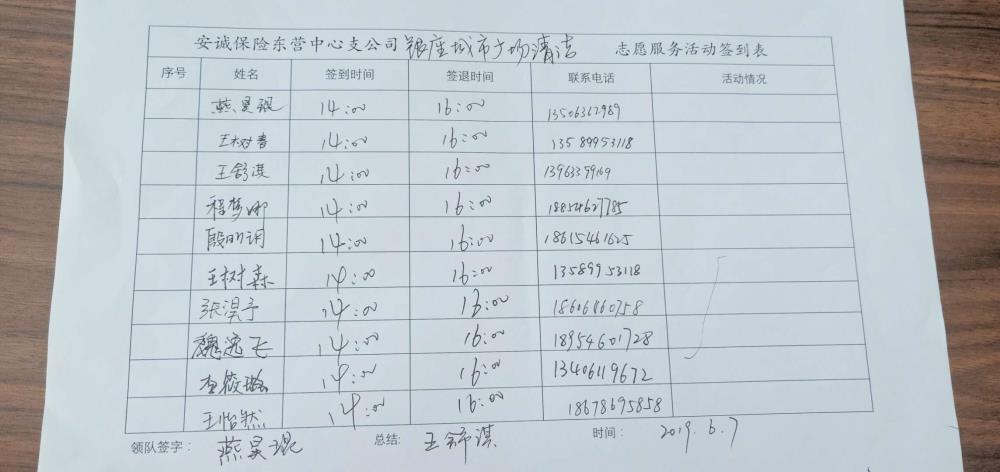 安诚保险东营中心支公司 银座城市广场清洁 志愿服务活动签到表
序号 姓名 签到时间 签退时间 联系电话 活动情况
燕昊琨 14:00 16:00 13506362989
王树春 14:00 16:00 13589953118
王舒淇 14:00 16:00 13963399169
程梦娜 14:00 16:00 18854627785
殷明明 14:00 16:00 18615461625
王树森 14:00 16:00 13589953118
张淏予 14:00 16:00 18606460758
魏逸飞 14:00 16:00 18954601728
李筱璐 14:00 16:00 13406119672
王怡然 14:00 16:00 18678695858
领队签字: 燕昊琨 总结: 王舒淇 时间: 2019.6.7